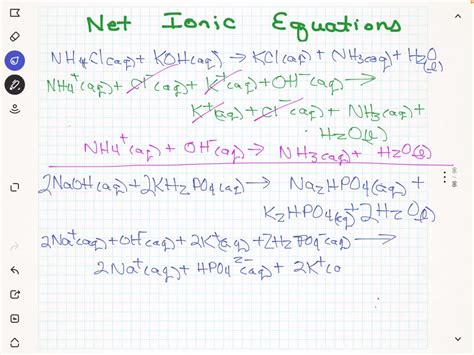 Net Ionic Equations
NH4Cl(aq) + KOH(aq) → KCl(aq) + NH3(aq) + H2O(l)
NH4+(aq) + Cl-(aq) + K+(aq) + OH-(aq) →
K+(aq) + Cl-(aq) + NH3(aq) +
H2O(l)
NH4+(aq) + OH-(aq) → NH3(aq) + H2O(l)
2NaOH(aq) + 2KH2PO4(aq) → Na2HPO4(aq) +
K2HPO4(aq) + 2H2O(l)
2Na+(aq) + OH-(aq) + 2K+(aq) + 2H2PO4-(aq) →
2Na+(aq) + HPO4 2-(aq) + 2K+(a